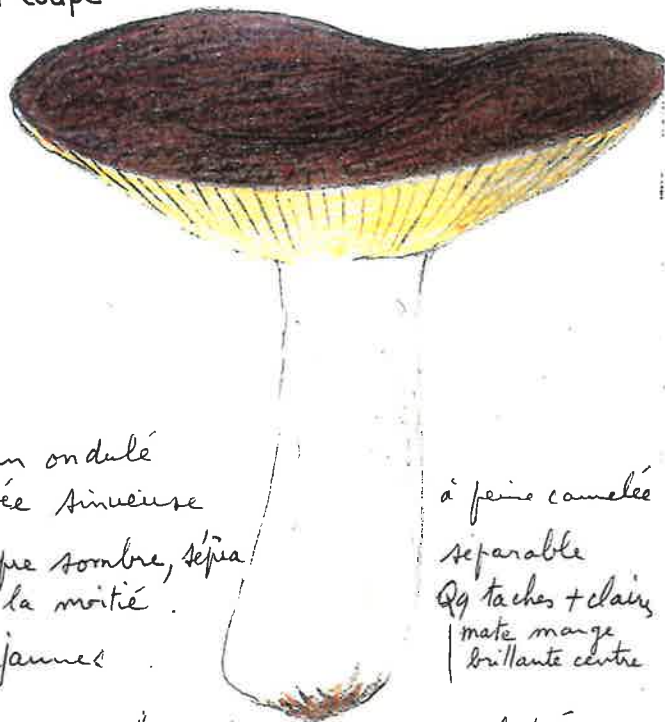 coupe
ondulé
sinueuse
sombre, sépia
la moitié .
jaunes .
à peine cannelée
séparable
Qq taches + claires
mate marge
brillante centre